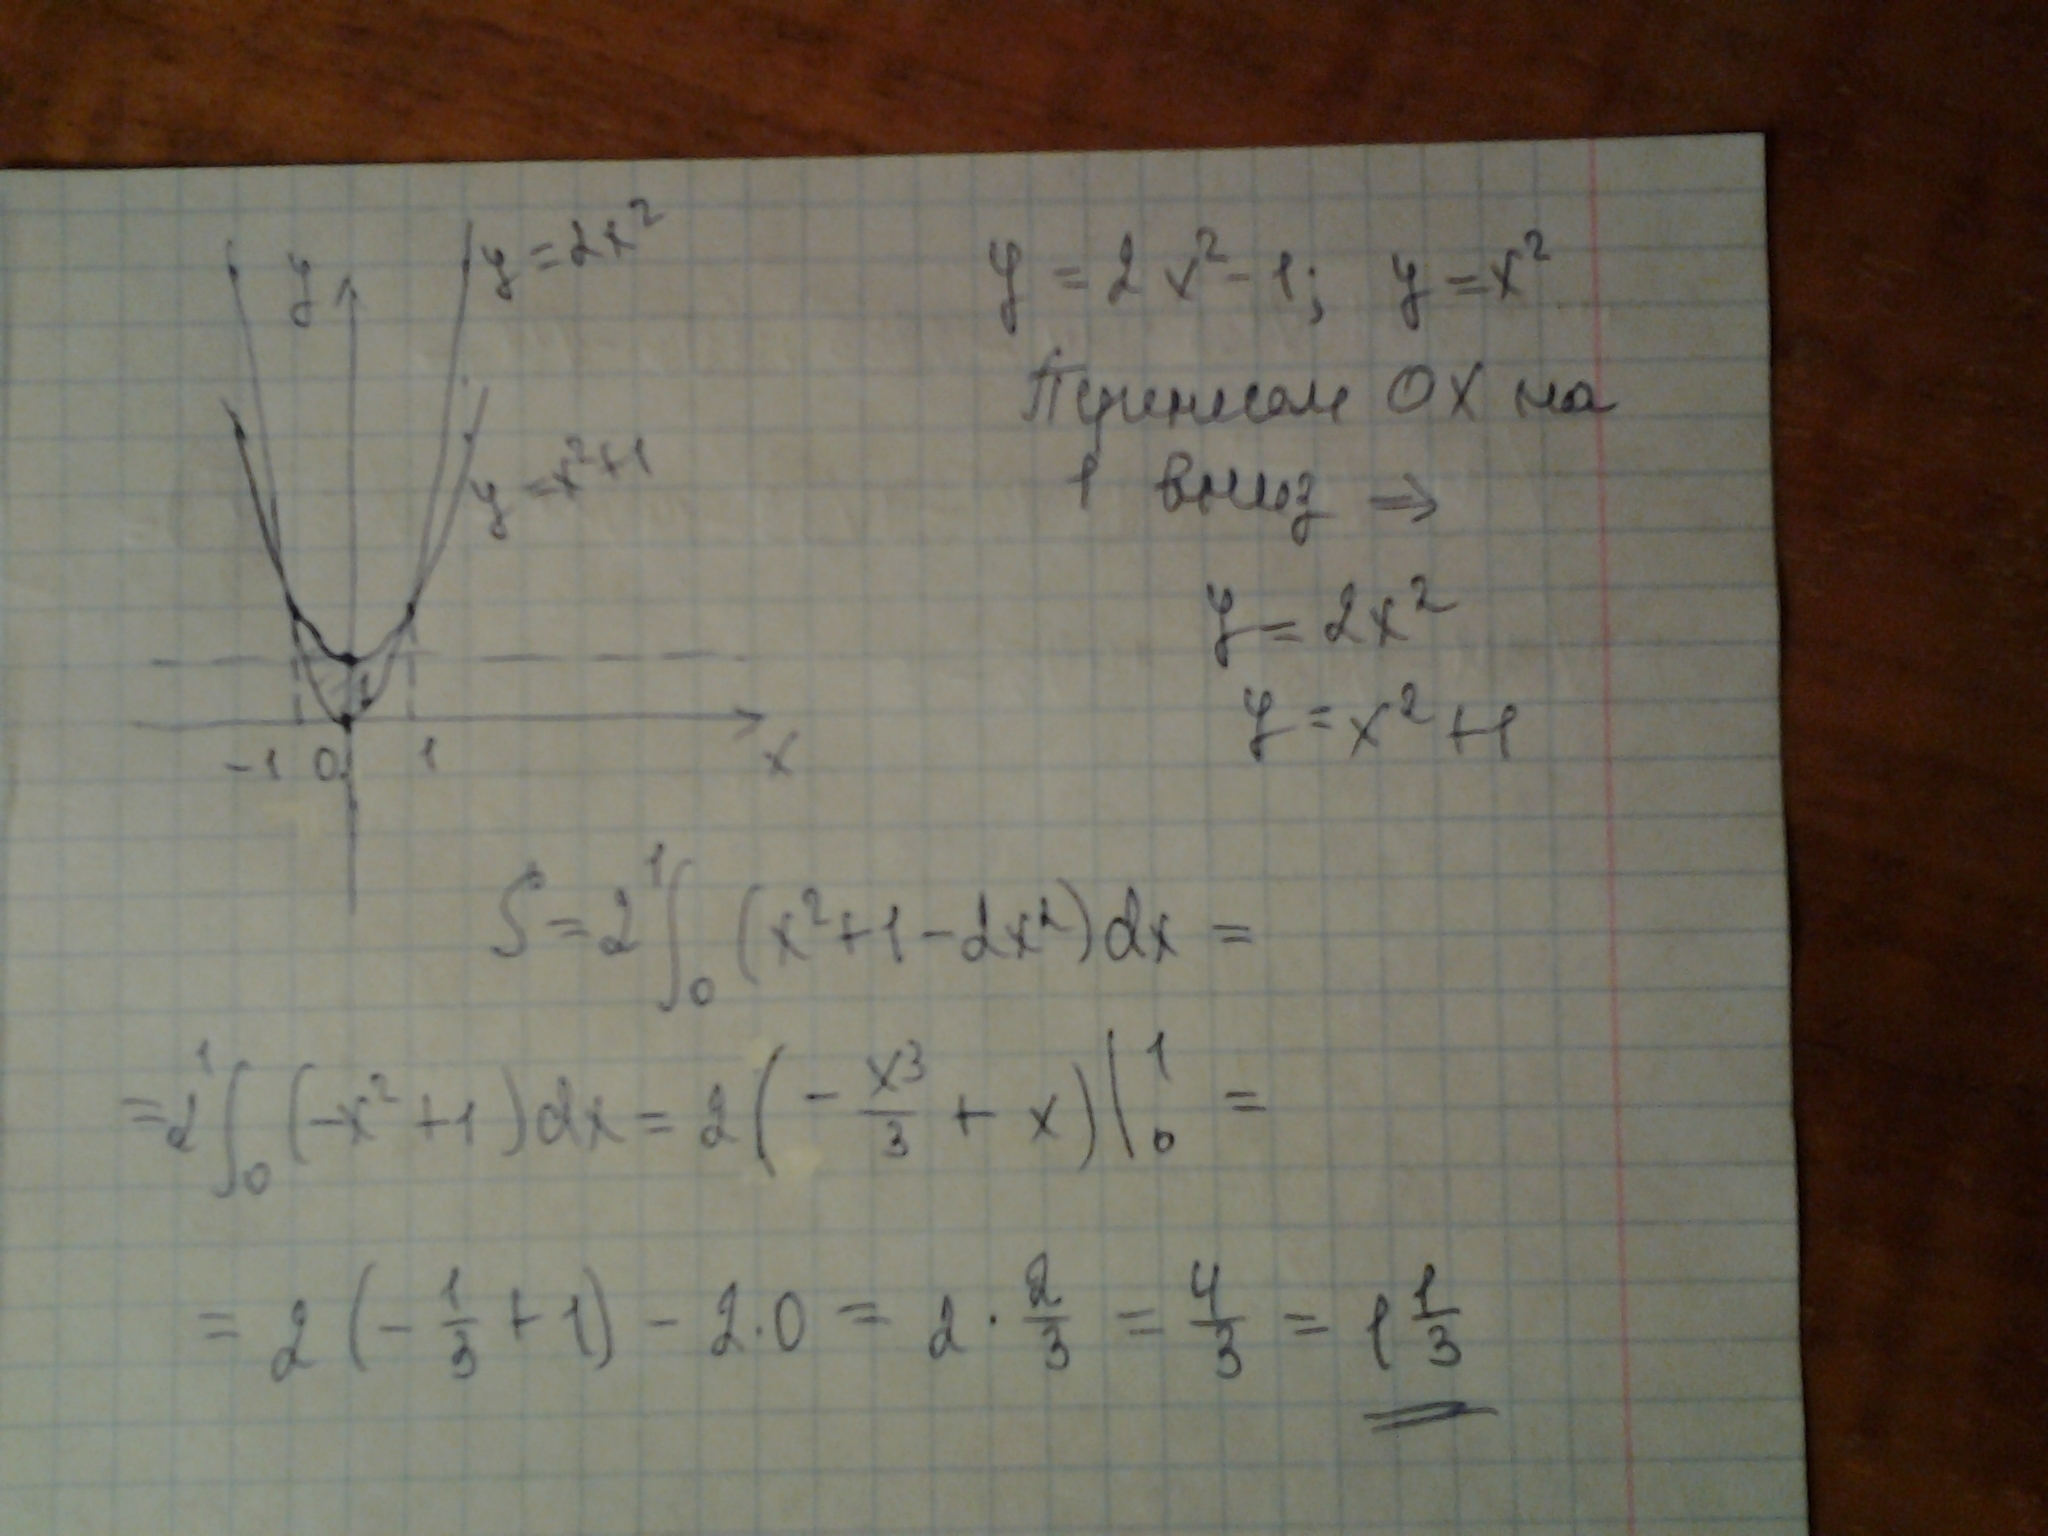 y = 2x²
y
y = x²+1
1
-1 0 1 x
y = 2x²-1; y = x²
Перенесем OX на
1 вниз ⇒
y = 2x²
y = x²+1
S = 2 ∫₀¹ (x²+1-2x²) dx =
= 2 ∫₀¹ (-x²+1) dx = 2 (- x³/3 + x) |₀¹ =
= 2 (- 1/3 + 1) - 2·0 = 2 · 2/3 = 4/3 = 1 1/3